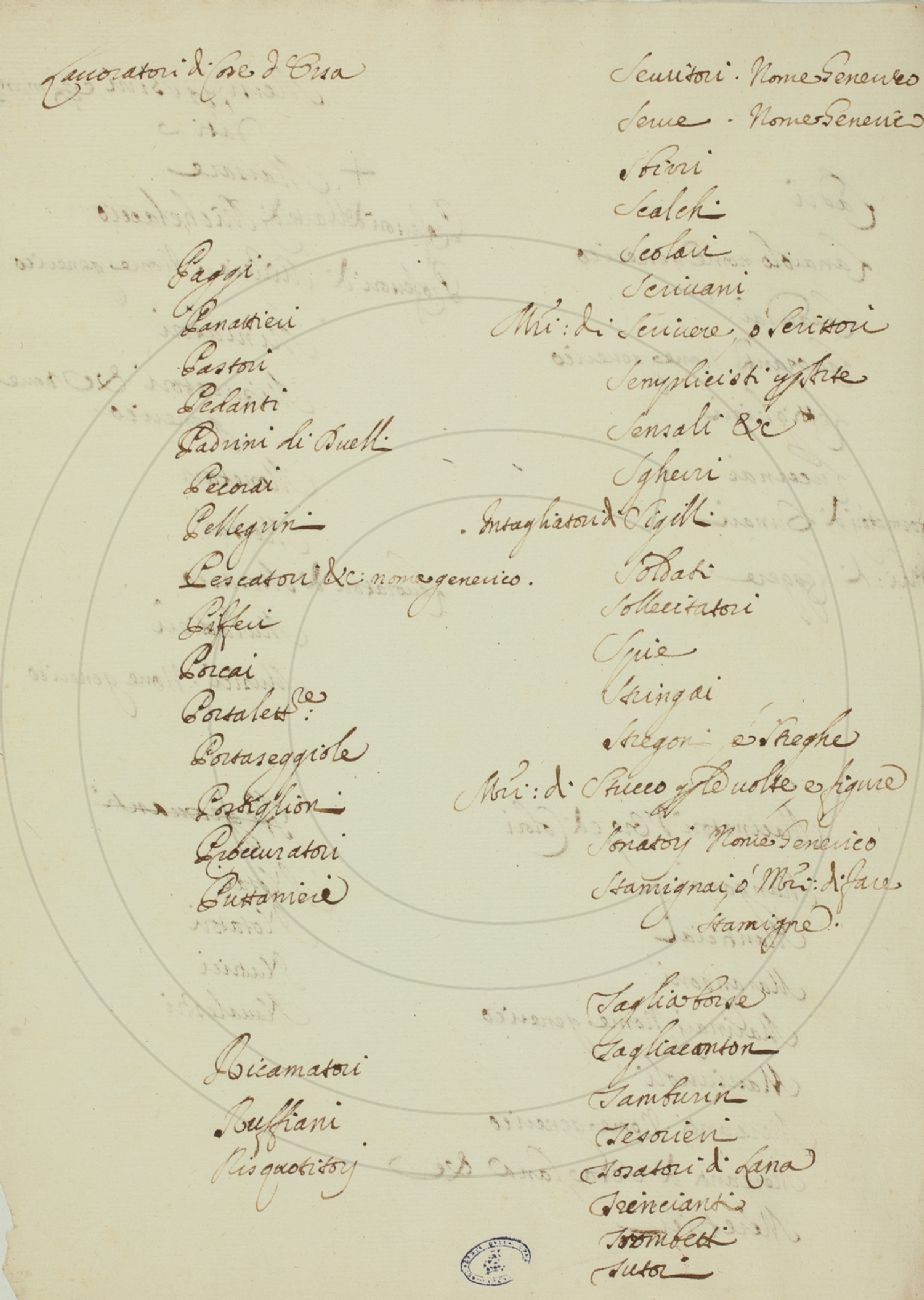 Lavoratori di Cose d'Orsa
Paggi
Panattieri
Pastori
Pedanti
Padrini di Duelli
Pecorai
Pellegrini
Pescatori &c: nome generico.
Pifferi
Porcai
Portalett:re
Portaseggiole
Postiglioni
Proccuratori
Puttanieri
Ricamatori
Ruffiani
Risquotitorj
Servitori. Nome Generico
Serve. Nome Generico
Sbirri
Scalchi
Scolari
Scrivani
Mri: di Scrivere, ó Scrittori
Semplicisti
Sensali &c
Sgherri
Intagliatori di Sigilli
Soldati
Sollecitatori
Spie
Stringai
Stregoni, é Streghe
Mri: di Stucco volte, e figure
Sonatorj Nome Generico
Stamignai, ó Mri: di fare
stamigne.
Tagliaborse
Tagliacantoni
Tamburini
Tesorieri
Tosatori di Lana
Trincianti
Trombetti
Tutori